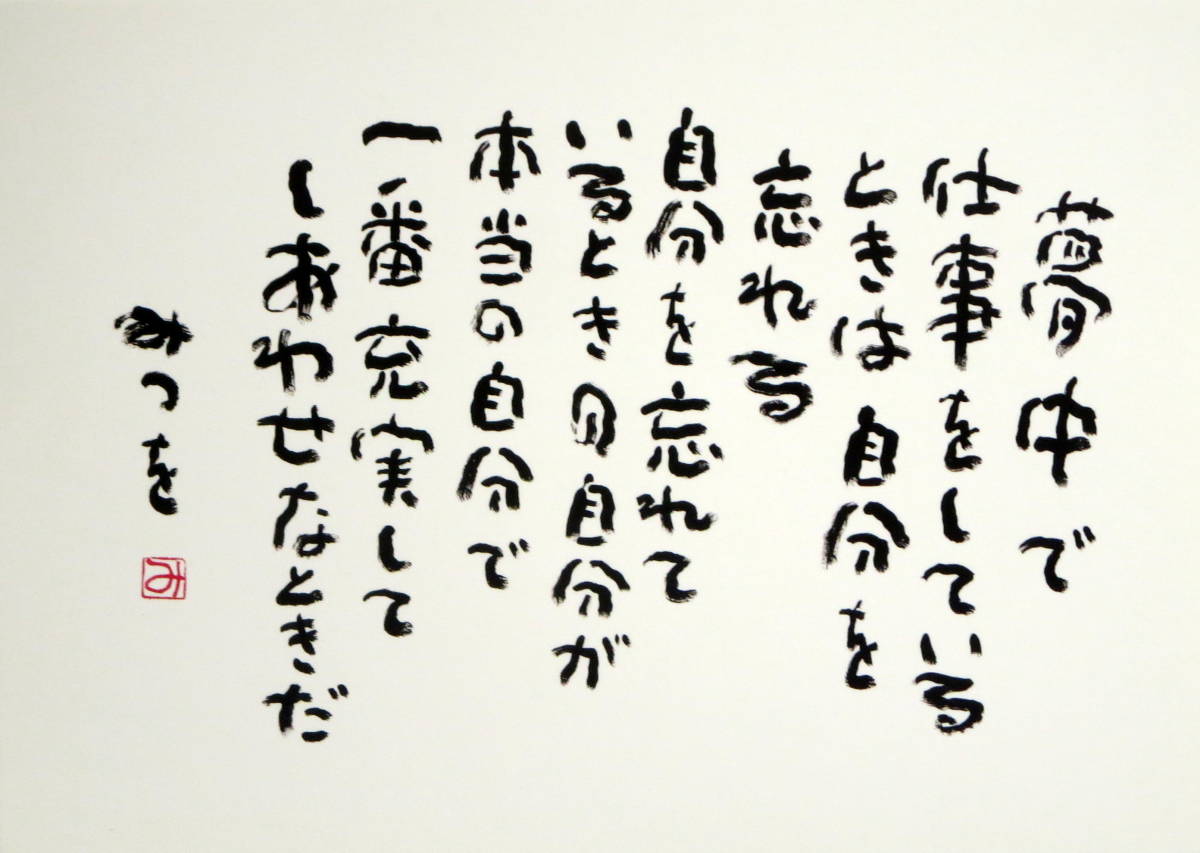 夢中で
仕事をしている
ときは自分を
忘れる
自分を忘れて
いるとき自分が
本当の自分で
一番充実して
しあわせなときだ
みつを
み